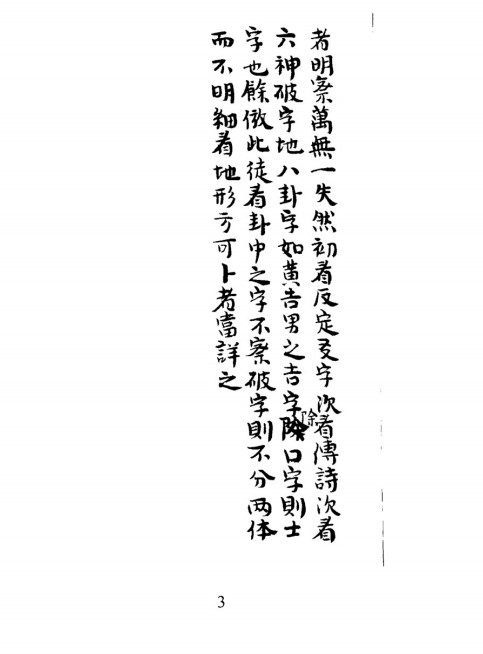 者明察萬無一失然初看反定字次看傳詩次看
六神破字地八卦字如黃吉男之吉字除口字則士
字也餘倣此徒看卦中之字不察破字則不分两体
而不明細看地形方可卜者當詳之
3